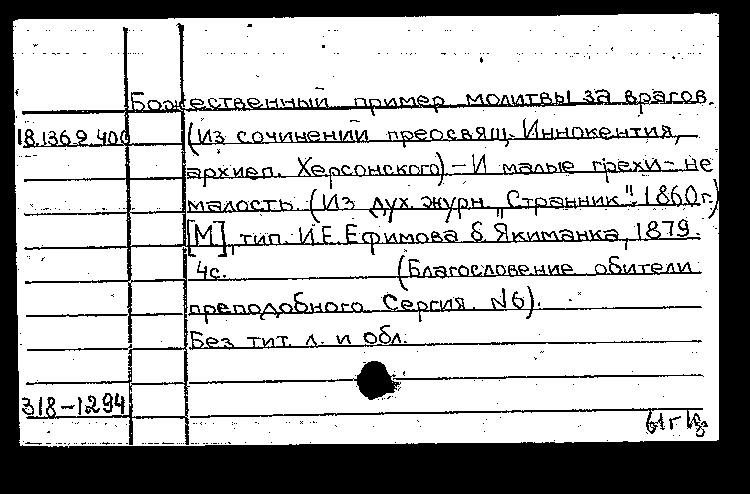 Божественный пример молитвы за врагов.
18.136 9 400 (Из сочинений преосвящ. Иннокентия,
архиеп. Херсонского) – И малые грехи – не
малость. (Из дух. журн. "Странник". 1860г.)
[М], тип. И.Е. Ефимова б. Якиманка, 1879.
4с. (Благословение обители
преподобного Сергия. N6).
Без тит. л. и обл.
318–1294
61г